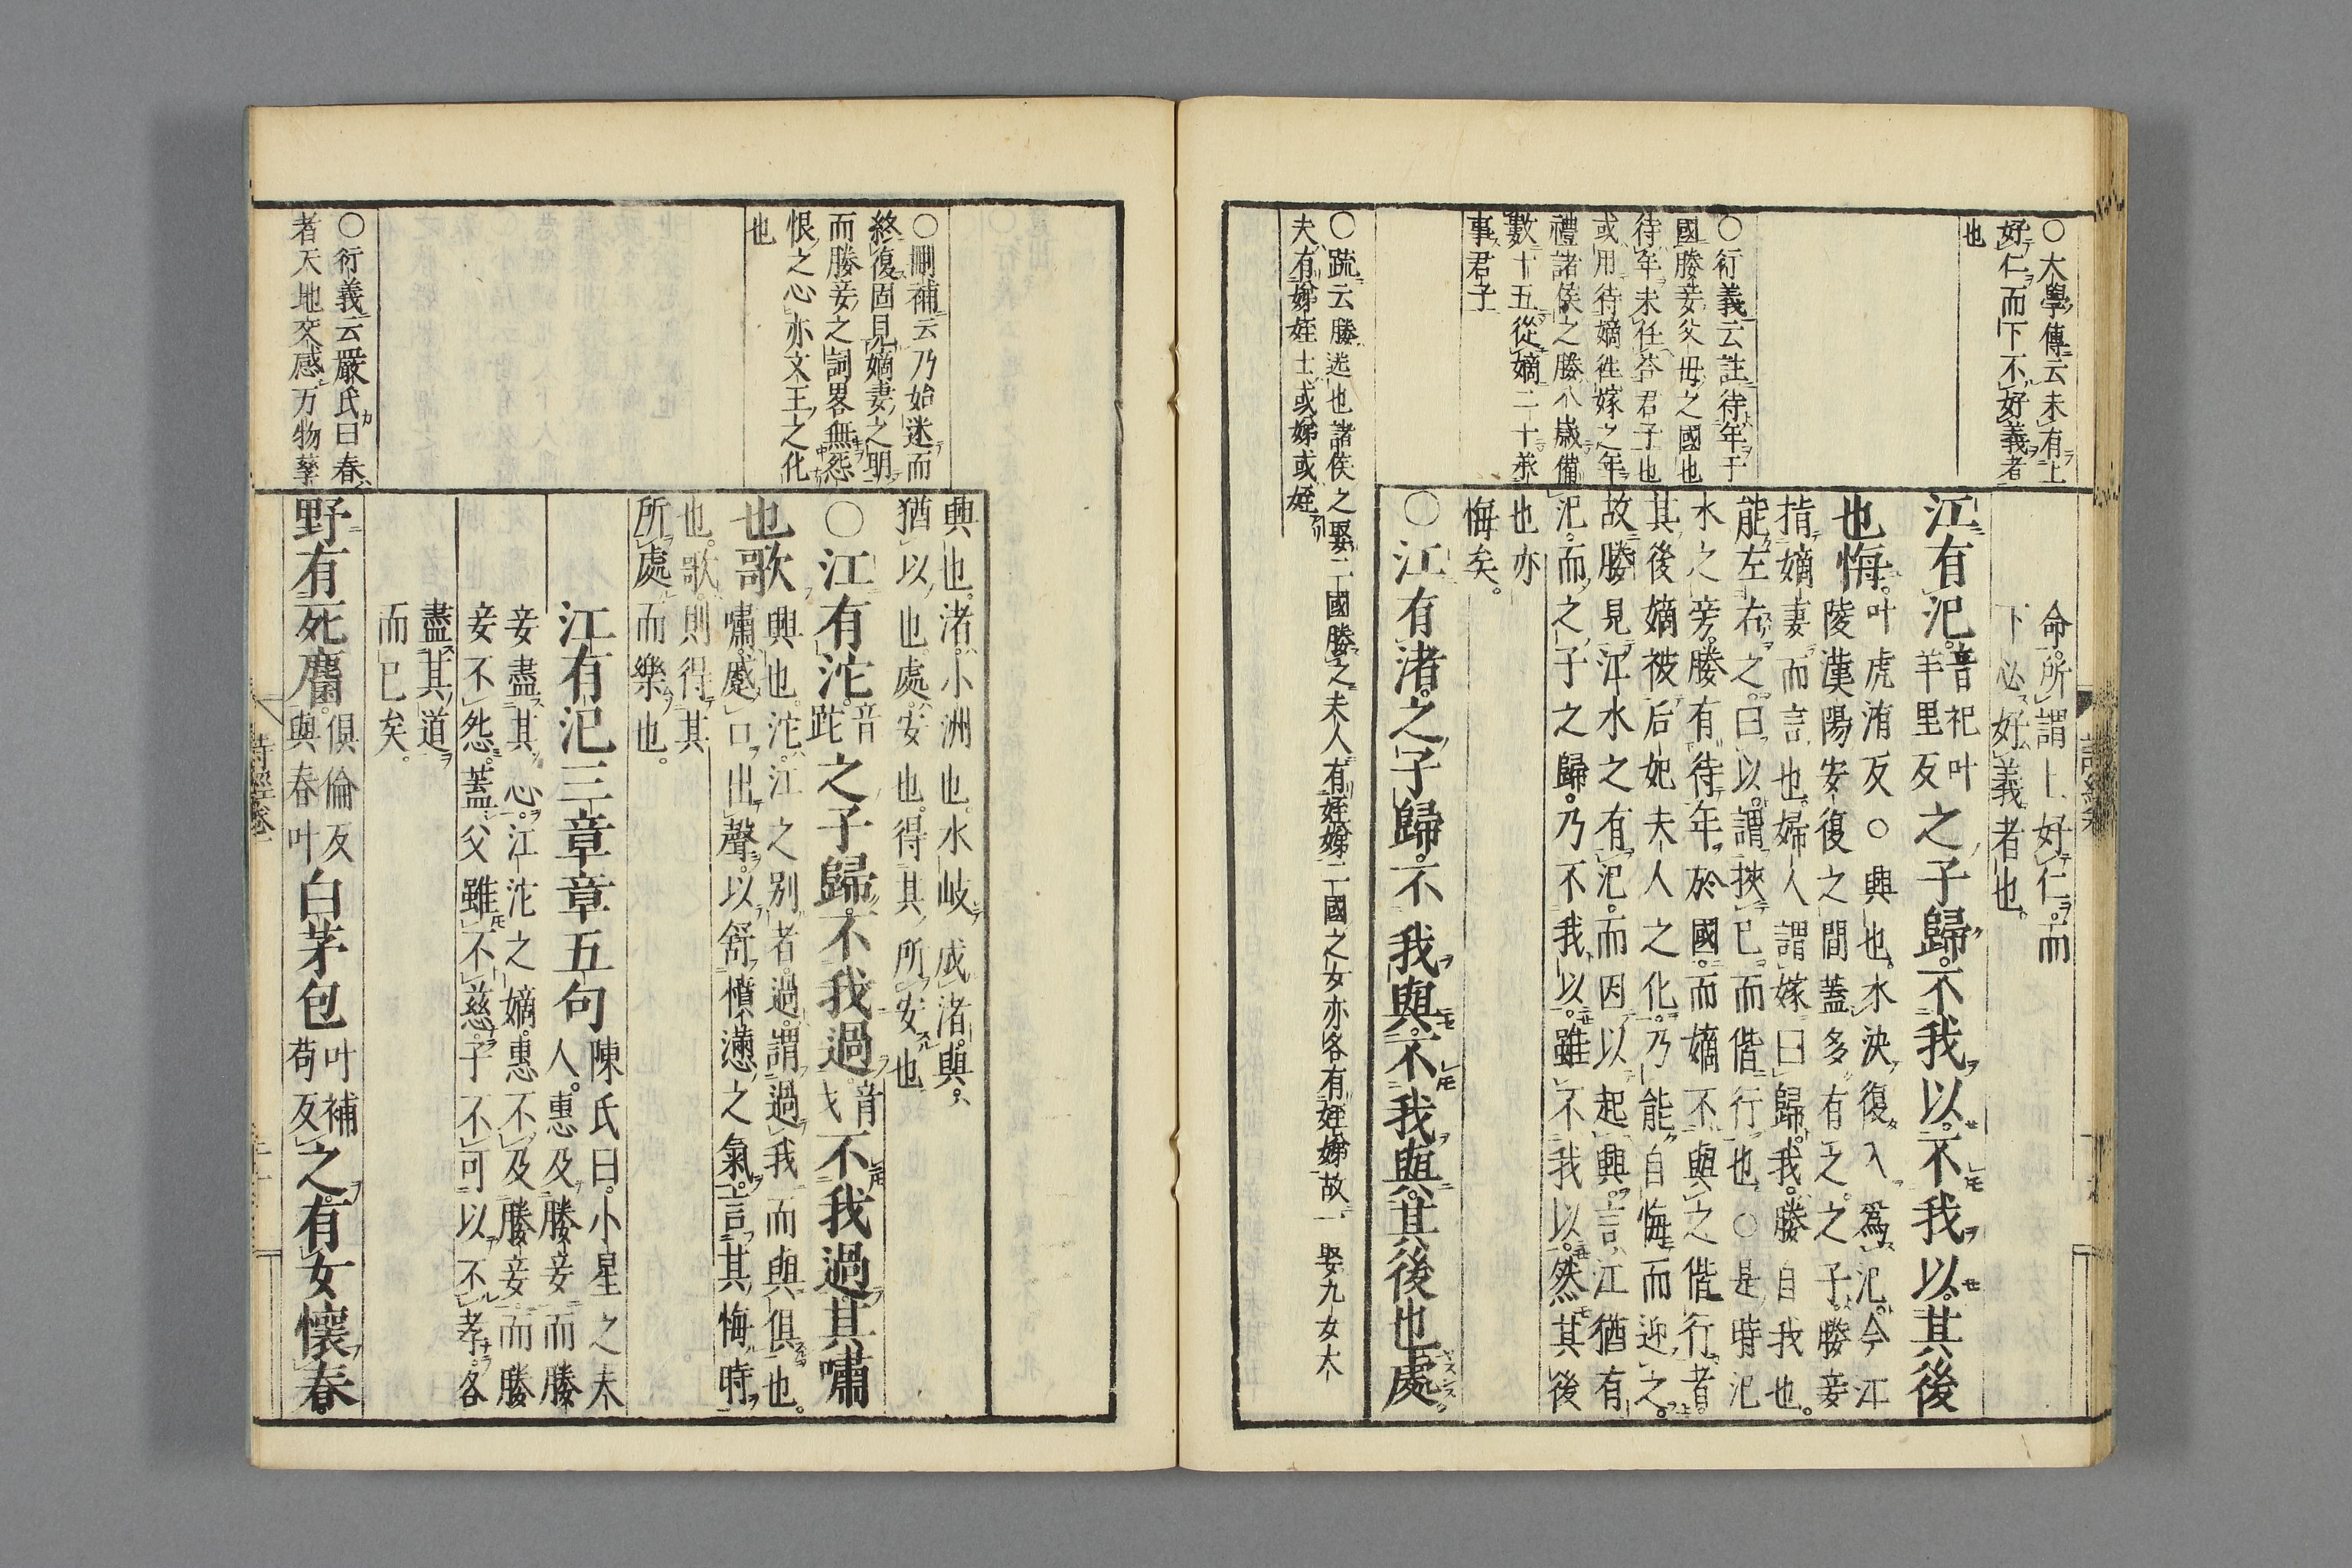 ○大學傳云未有上
好仁而下不好義者
也
○衍義云註待年于
國媵妾父母之國也
待年未任荅君子也
或用待嫡徃嫁之年
禮諸侯之媵八歳備
數十五從嫡二十羕
事君子
○疏云媵送也諸侯之娶二國媵之夫人有姪娣二國之女亦各有姪娣故一娶九女大
夫有娣姪士或娣或姪
命所謂上好仁而
下必好義者也
江有汜音祀叶羊里反之子歸不我以不我以其後
也悔叶虎洧反○興也水決復入爲汜今江
陵漢陽安復之間蓋多有之之子媵妾
指嫡妻而言也婦人謂嫁曰歸我媵自我也
能左右之曰以謂挾已而偕行也○是時汜
水之旁媵有待年於國而嫡不與之偕行者
其後嫡被后妃夫人之化乃能自悔而迎之
故媵見江水之有汜而因以起興言江猶有
汜而之子之歸乃不我以雖不我以然其後
也亦
悔矣
○江有渚之子歸不我與不我與其後也處
○刪補云乃始迷而
終復固見嫡妻之明
而媵妾之詞畧無怨
恨之心亦文王之化
也
○衍義云嚴氏曰春
者天地交感万物孳
興也渚小洲也水岐成渚與
猶以也處安也得其所安也
○江有沱音跎之子歸不我過音戈不我過其嘯
也歌興也沱江之別者過謂過我而與俱也
嘯蹙口出聲以舒憤懣之氣言其悔時
也歌則得其
所處而樂也
江有汜三章章五句陳氏曰小星之夫
人惠及媵妾而媵
妾盡其心江沱之嫡惠不及媵妾而媵
妾不怨蓋父雖不慈子不可以不孝各
盡其道
而已矣
野有死麕俱倫反與春叶白茅包叶補苟反之有女懷春